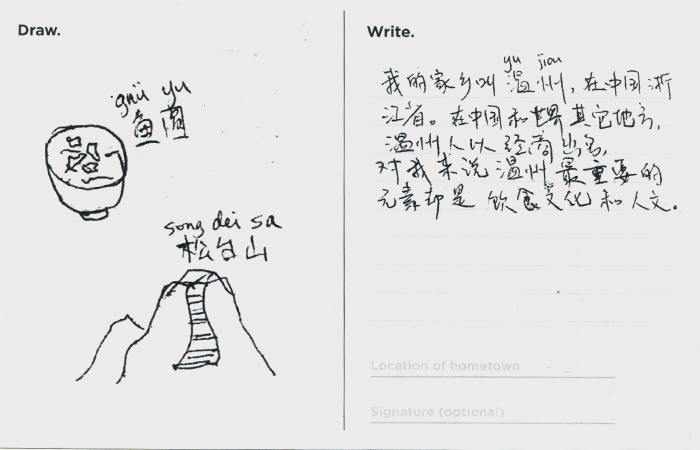 Draw.
gnü yu
鱼圆
song dei sa
松台山
Write.
yu jiou
我的家乡叫温州，在中国浙
江省。在中国和世界其它地方，
温州人以经商出名，
对我来说温州最重要的
元素却是饮食文化和人文。
Location of hometown
Signature (optional)